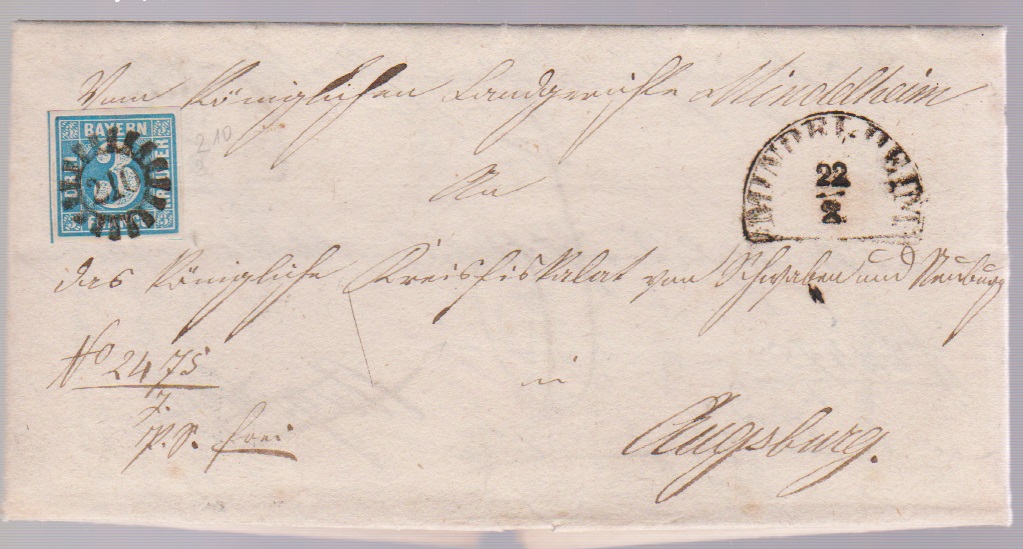 Vom Königlichen Landgerichte Mindelheim
BAYERN
DREI
3
KREUZER
210
210
MINDELHEIM
22
8
An
das Königliche Kreisfiskalat von Schwaben und Neuburg
No 2475
in
P. S. frei
Augsburg.